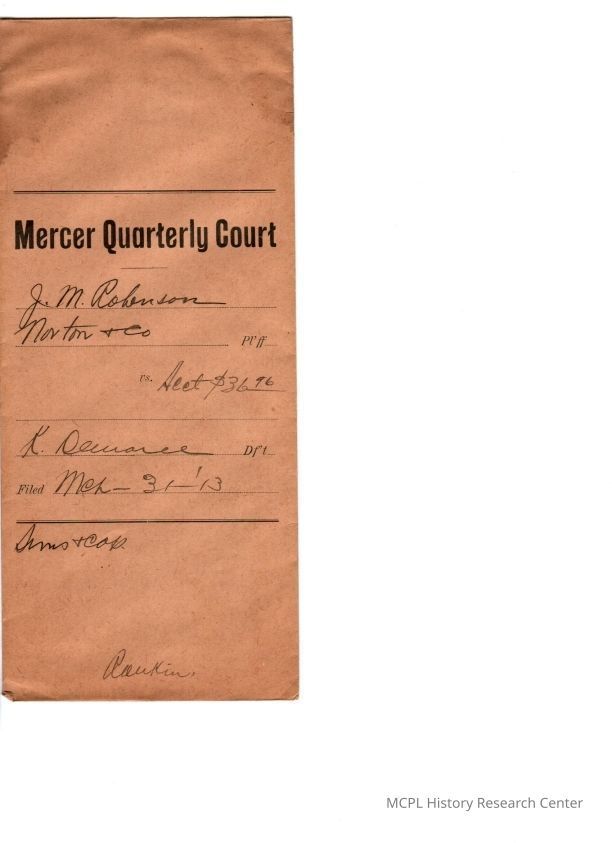 Mercer Quarterly Court
J. M. Robinson
Norton & Co Pl'ff
vs. Acct $36 96
K. Demaree Df't
Filed Mch - 31 - '13
Sums & Cop.
Rankin.
MCPL History Research Center